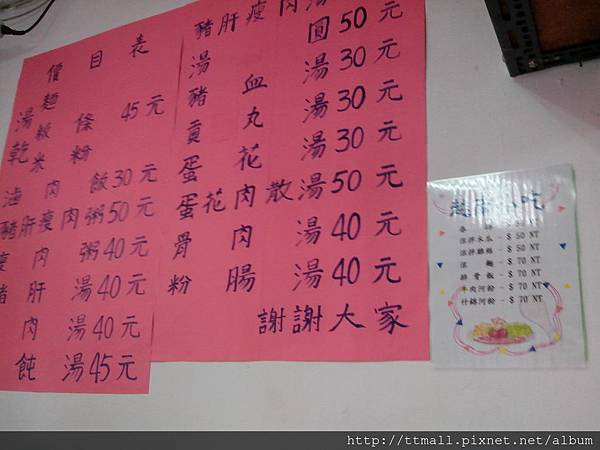 價目表
湯 麵
粄條 45元
乾 米粉
滷肉飯30元
豬肝瘦肉粥50元
瘦肉粥40元
豬肝湯40元
肉湯40元
飩湯45元
豬肝瘦肉湯
湯圓50元
豬血湯30元
貢丸湯30元
蛋花湯30元
蛋花肉散湯50元
骨肉湯40元
粉腸湯40元
謝謝大家
越南小吃
春 - $ 50 NT
涼拌木瓜 - $ 50 NT
涼拌雞絲 - $ 50 NT
涼 麵 - $ 70 NT
排骨飯 - $ 70 NT
牛肉河粉 - $ 70 NT
什錦河粉 - $ 70 NT
http://ttmall.pixnet.net/album